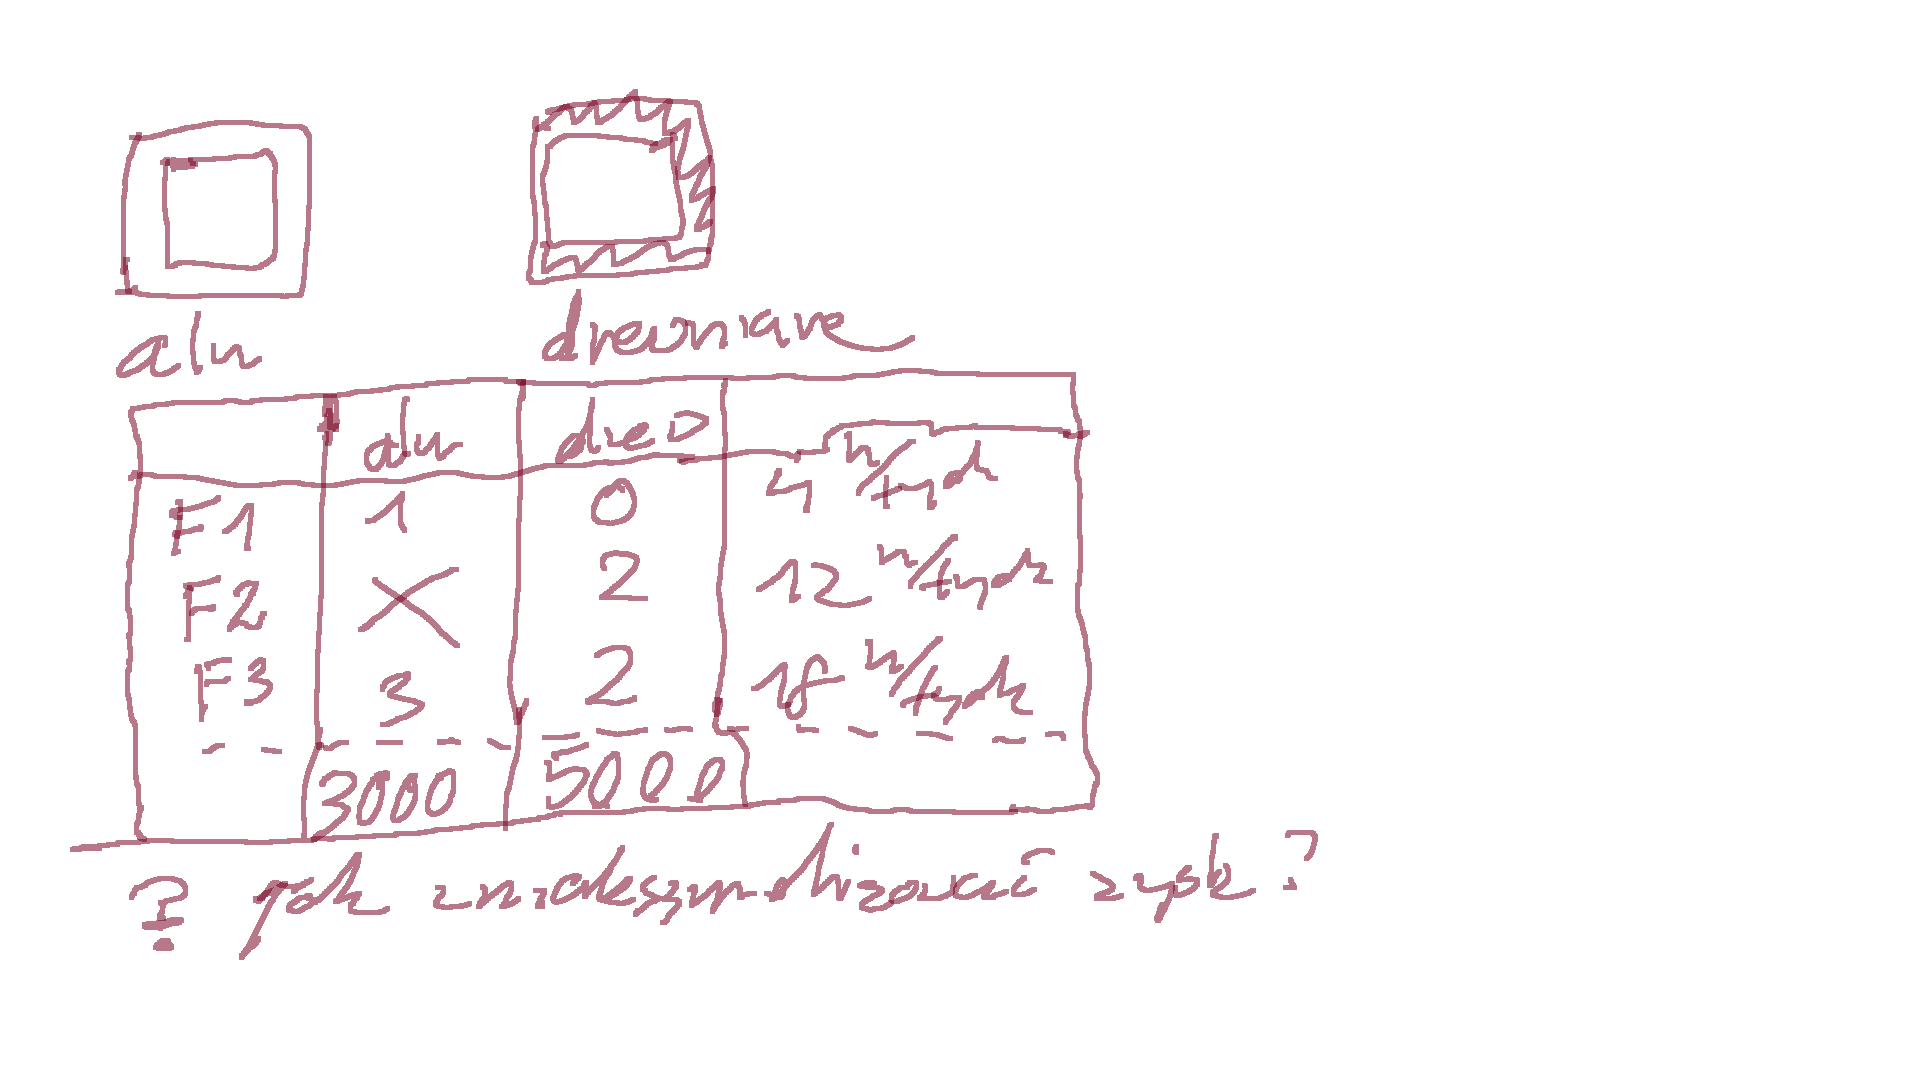 alu drewniane
alu drew
F1 1 0 4 h/tydz
F2 X 2 12 h/tydz
F3 3 2 18 h/tydz
3000 5000
? Jak zmaksymalizować zysk?